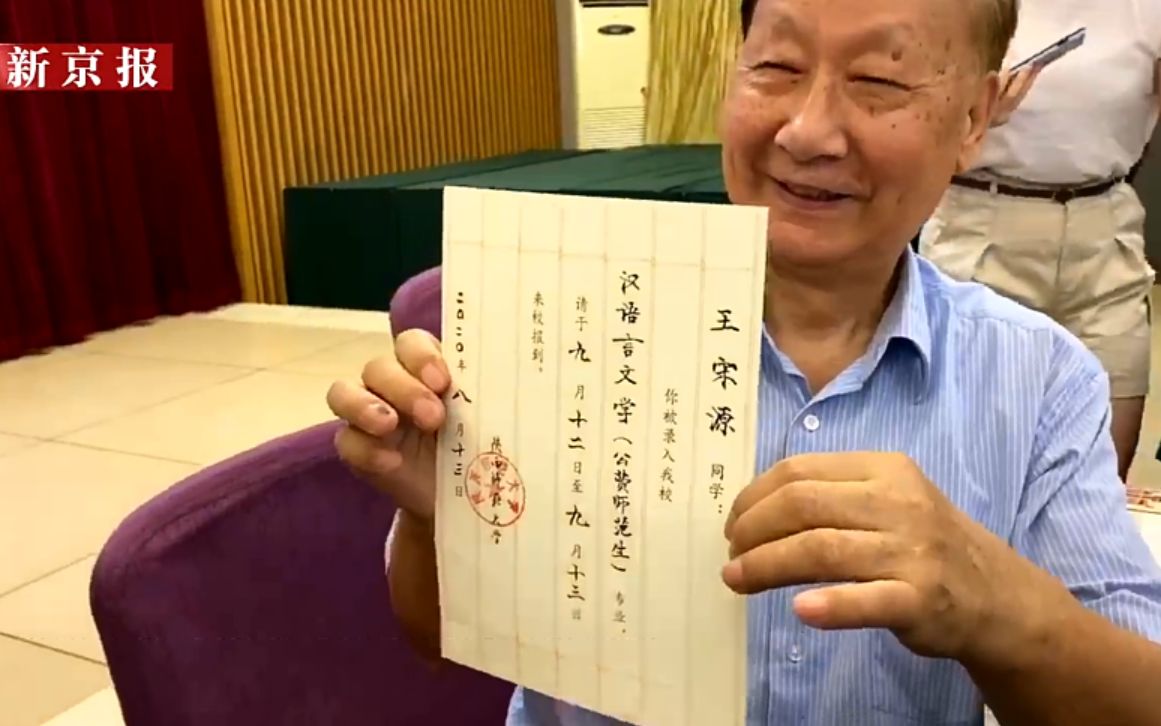 新京报
王宋源 同学：
你被录入我校
汉语言文学（公费师范生）专业，
请于九月十二日至九月十三日
来校报到。
陕西师范大学
二〇二〇年八月十三日